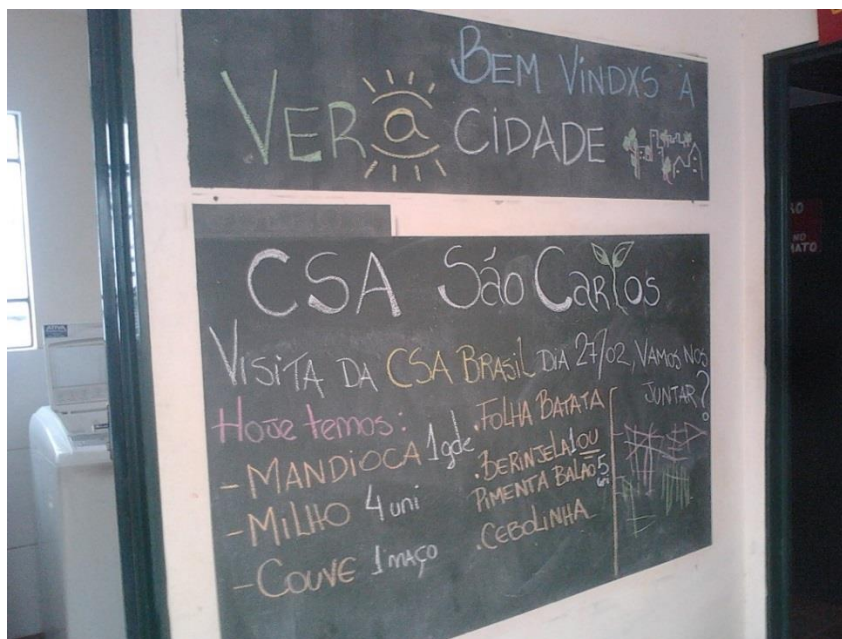 BEM VINDXS À
VER@CIDADE
CSA São Carlos
VISITA DA CSA BRASIL DIA 27/02, VAMOS NOS
JUNTAR?
Hoje temos:
- MANDIOCA 1 gde
- MILHO 4 uni
- COUVE 1 MAÇO
. FOLHA BATATA
. BERINJELA 1 OU
PIMENTA BALÃO 5
. CEBOLINHA
ATIVA
NO
MATO